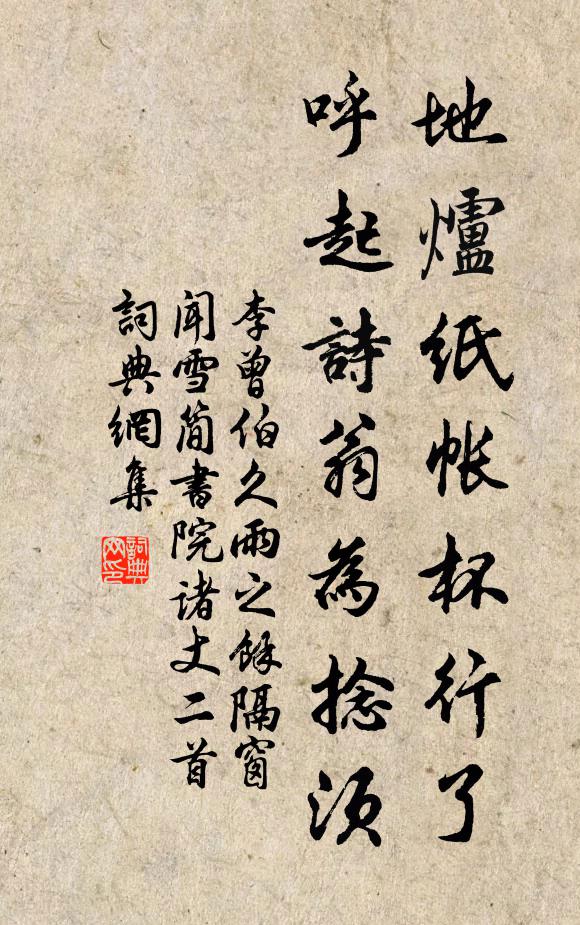 地爐紙帳杯行了
呼起詩翁為捻須
李曾伯久雨之餘隔窗
闻雪简書院诸丈二首
詞典網集
詞典網印